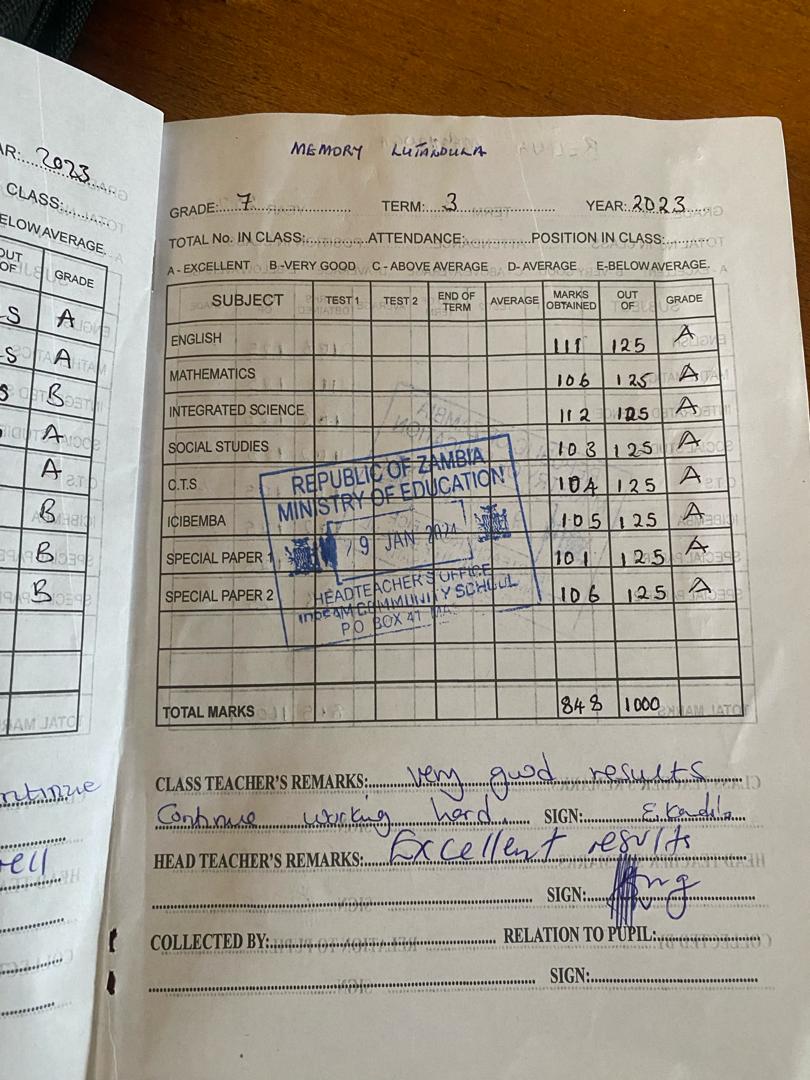 2023
CLASS:
BELOW AVERAGE.
OUT OF GRADE
A
A
B
A
A
B
B
B
MEMORY LUTANDULA
GRADE: 7 TERM: 3 YEAR: 2023
TOTAL No. IN CLASS: ATTENDANCE: POSITION IN CLASS:
A - EXCELLENT B -VERY GOOD C - ABOVE AVERAGE D- AVERAGE E-BELOW AVERAGE.
SUBJECT TEST 1 TEST 2 END OF TERM AVERAGE MARKS OBTAINED OUT OF GRADE
ENGLISH 111 125 A
MATHEMATICS 106 125 A
INTEGRATED SCIENCE 112 125 A
SOCIAL STUDIES 103 125 A
C.T.S 104 125 A
ICIBEMBA 105 125 A
SPECIAL PAPER 1 101 125 A
SPECIAL PAPER 2 106 125 A
REPUBLIC OF ZAMBIA
MINISTRY OF EDUCATION
JAN 2024
HEADTEACHER'S OFFICE
COMMUNITY SCHOOL
P.O BOX 41
TOTAL MARKS 848 1000
CLASS TEACHER'S REMARKS: very good results
Continue working hard. SIGN:
HEAD TEACHER'S REMARKS: Excellent results
SIGN:
COLLECTED BY: RELATION TO PUPIL:
SIGN: